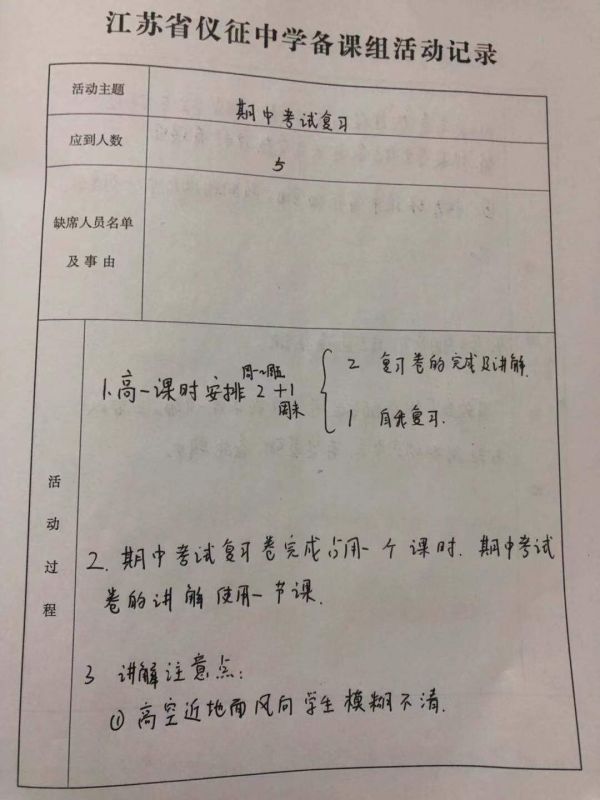 江苏省仪征中学备课组活动记录
活动主题
期中考试复习
应到人数
5
缺席人员名单
及事由
活动过程
1.高一课时安排 2+1
周一~周五
周末
2 复习卷的完成及讲解.
1 自我复习.
2. 期中考试复习卷完成占用一个课时. 期中考试
卷的讲解使用一节课.
3 讲解注意点:
① 高空近地面风向学生模糊不清.